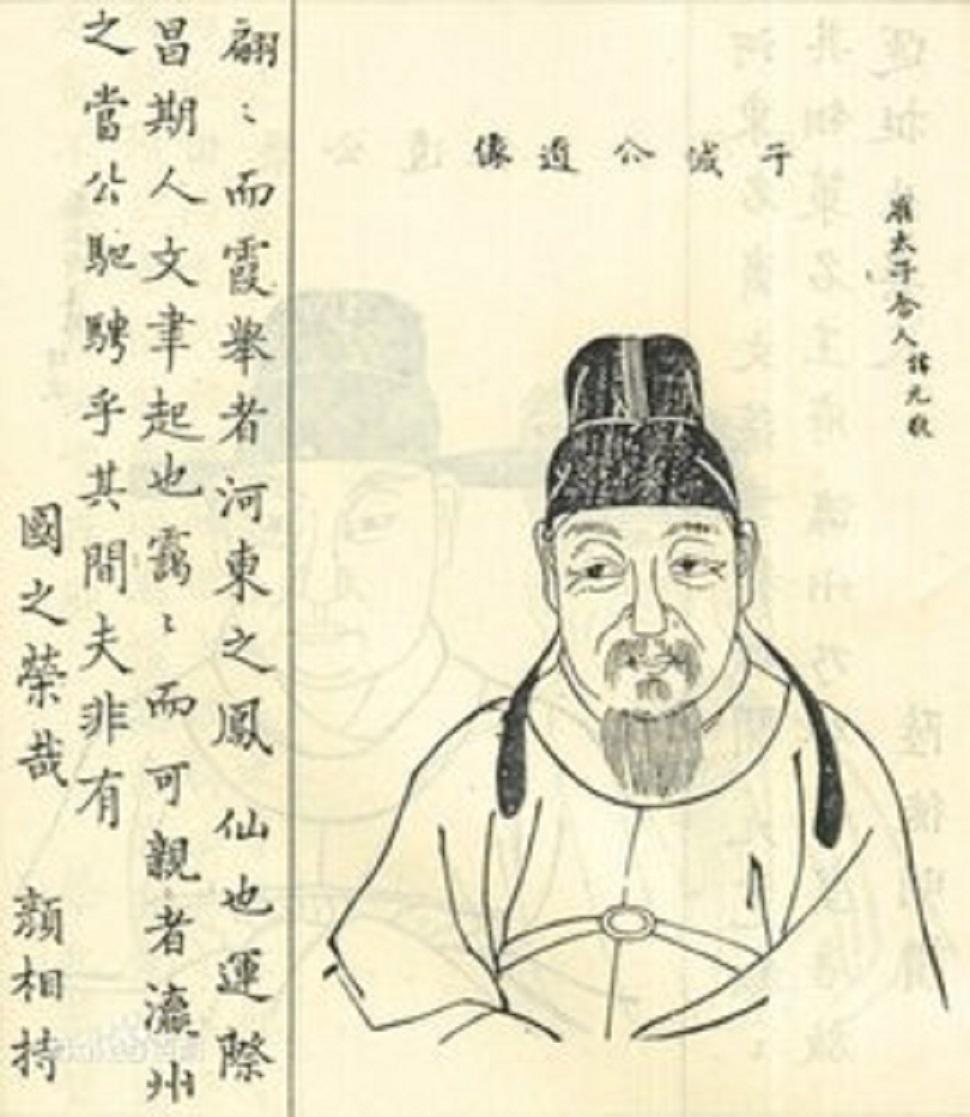 唐太子舍人諱元敬
子誠公遺像
翩〻而霞舉者河東之鳳仙也運際
昌期人文聿起也靄〻而可親者瀛州
之當公馳騁乎其間夫非有
國之榮哉 顏相持